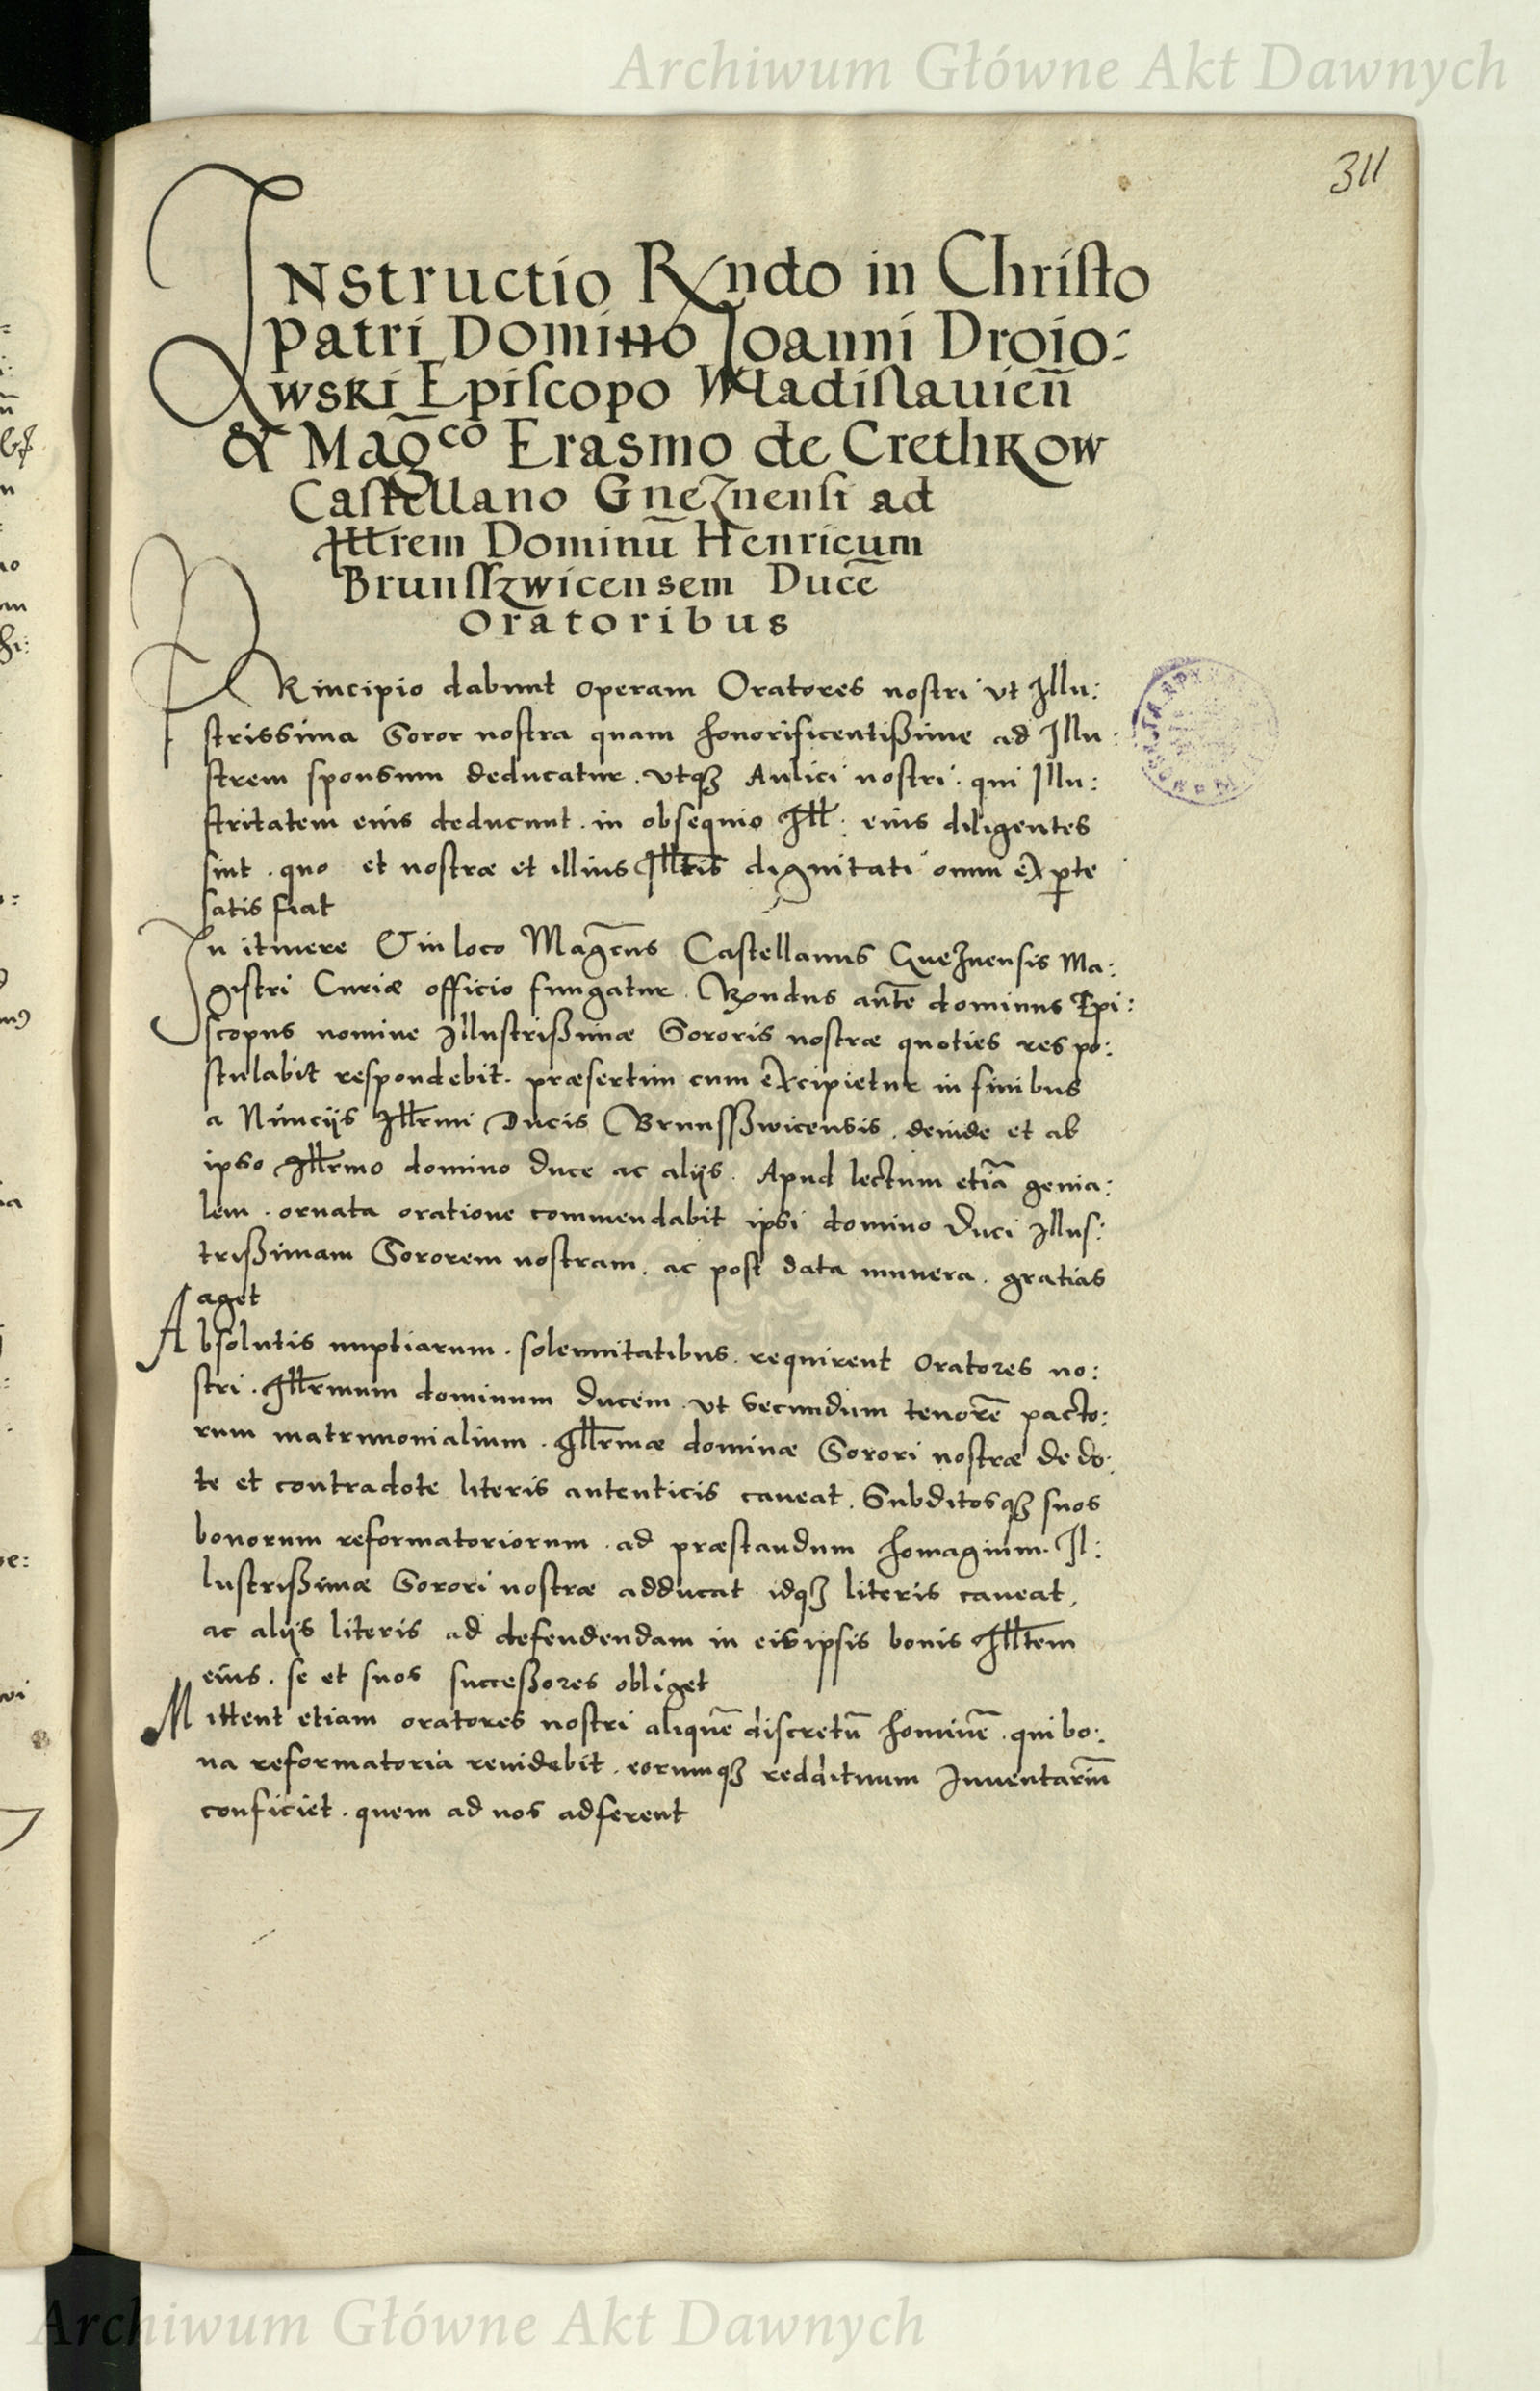 Archiwum Główne Akt Dawnych
311
INstructio R̃ndo in Christo
Patri Domino Joanni Droio:
wski Episcopo Wladislauien̄
& Mag̃co Erasmo de Crethkow
Castellano Gneznensi ad
Illrem Dominū Henricum
Brunsszwicensem Ducē
Oratoribus
PRincipio dabunt operam Oratores nostri vt Illu:
strissima Soror nostra quam honorificentißime ad Illu:
strem sponsum deducatur . vtqʒ Aulici nostri . qui Illu:
stritatem eius deducunt . in obsequio Ill: eius diligentes
sint . quo et nostræ et illius Illtris dignitati omni ex ꝑte
satis fiat
In itinere & in loco Mag̃cus Castellanus Gneznensis Ma:
gistri Curiæ officio fungatur . Rẽndus autē dominus Epi:
scopus nomine Illustrißimæ Sororis nostræ quoties res po:
stulabit respondebit . præsertim cum excipietur in finibus
a Núnciis Illrmi Ducis Brunsßwicensis . deinde et ab
ipso Illrmo domino duce ac aliis . Apud lectum etiā genia:
lem . ornata oratione commendabit ipsi domino Duci Illus:
trißimam Sororem nostram . ac post data munera . gratias
aget
Absolutis nuptiarum . solennitatibus . requirent Oratores no:
stri . Illrmum dominum Ducem . vt secundum tenorē pacto:
rum matrimonialium . Illrmæ dominæ Sorori nostræ de do:
te et contradote literis autenticis caueat . Subditosqʒ suos
bonorum reformatoriorum . ad præstandum homagium . Il:
lustrißimæ Sorori nostræ adducat idqʒ literis caueat,
ac aliis literis ad defendendam in eisipsis bonis Illtem
eius . se et suos succeßores obliget
Mittent etiam oratores nostri aliquē discretū hominē . qui bo:
na reformatoria reuidebit . eorumqʒ reddituum Inuentariū
conficiet . quem ad nos adferent
Archiwum Główne Akt Dawnych